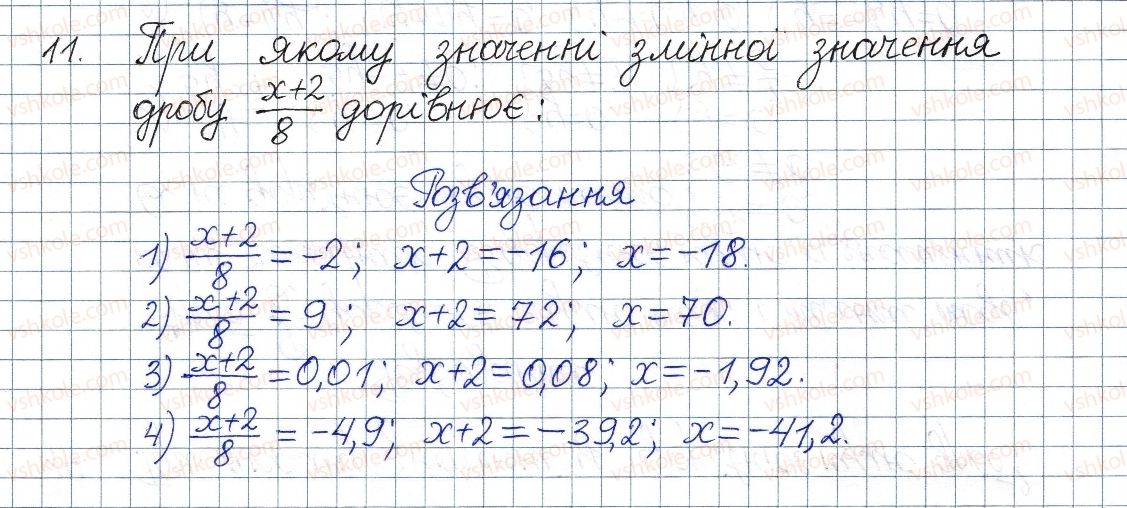 11. При якому значенні змінної значення
дробу \frac{x+2}{8} дорівнює:
Розв'язання
1) \frac{x+2}{8} = -2; x+2 = -16; x = -18.
2) \frac{x+2}{8} = 9; x+2 = 72; x = 70.
3) \frac{x+2}{8} = 0,01; x+2 = 0,08; x = -1,92.
4) \frac{x+2}{8} = -4,9; x+2 = -39,2; x = -41,2.
vshkole.com